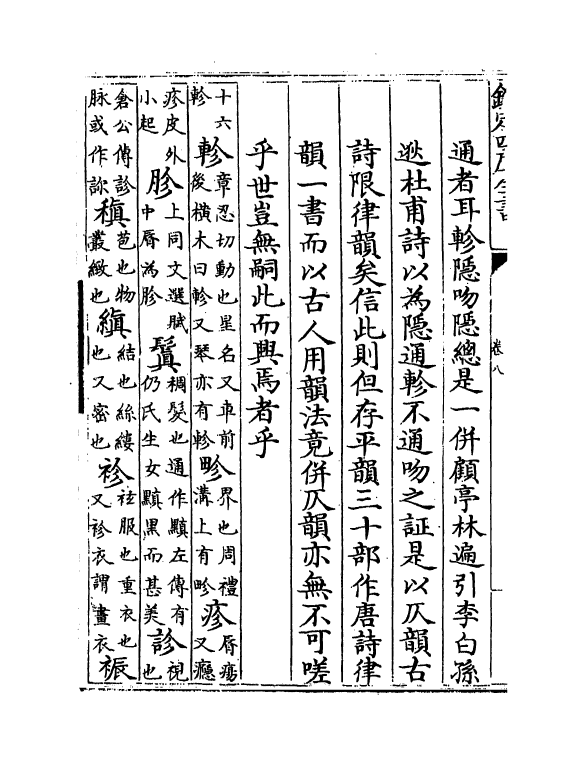 欽定四庫全書
卷八
通者耳軫隠吻隠總是一併顧亭林遍引李白孫
逖杜甫詩以為隠通軫不通吻之証是以仄韻古
詩限律韻矣信此則但存平韻三十部作唐詩律
韻一書而以古人用韻法竟併仄韻亦無不可嗟
乎世豈無嗣此而興焉者乎
十六軫 軫章忍切動也星名又車前後橫木曰軫又琴亦有軫 畛界也周禮溝上有畛 疹脣瘍又癮
疹皮外小起 胗上同文選賦中脣為胗 鬒稠髮也通作黰左傳有仍氏生女黰黑而甚美 診視也
倉公傳診脉或作 稹苞也物叢緻也 縝結也絲縷也又密也 袗袨服也重衣也又袗衣謂畫衣 裖